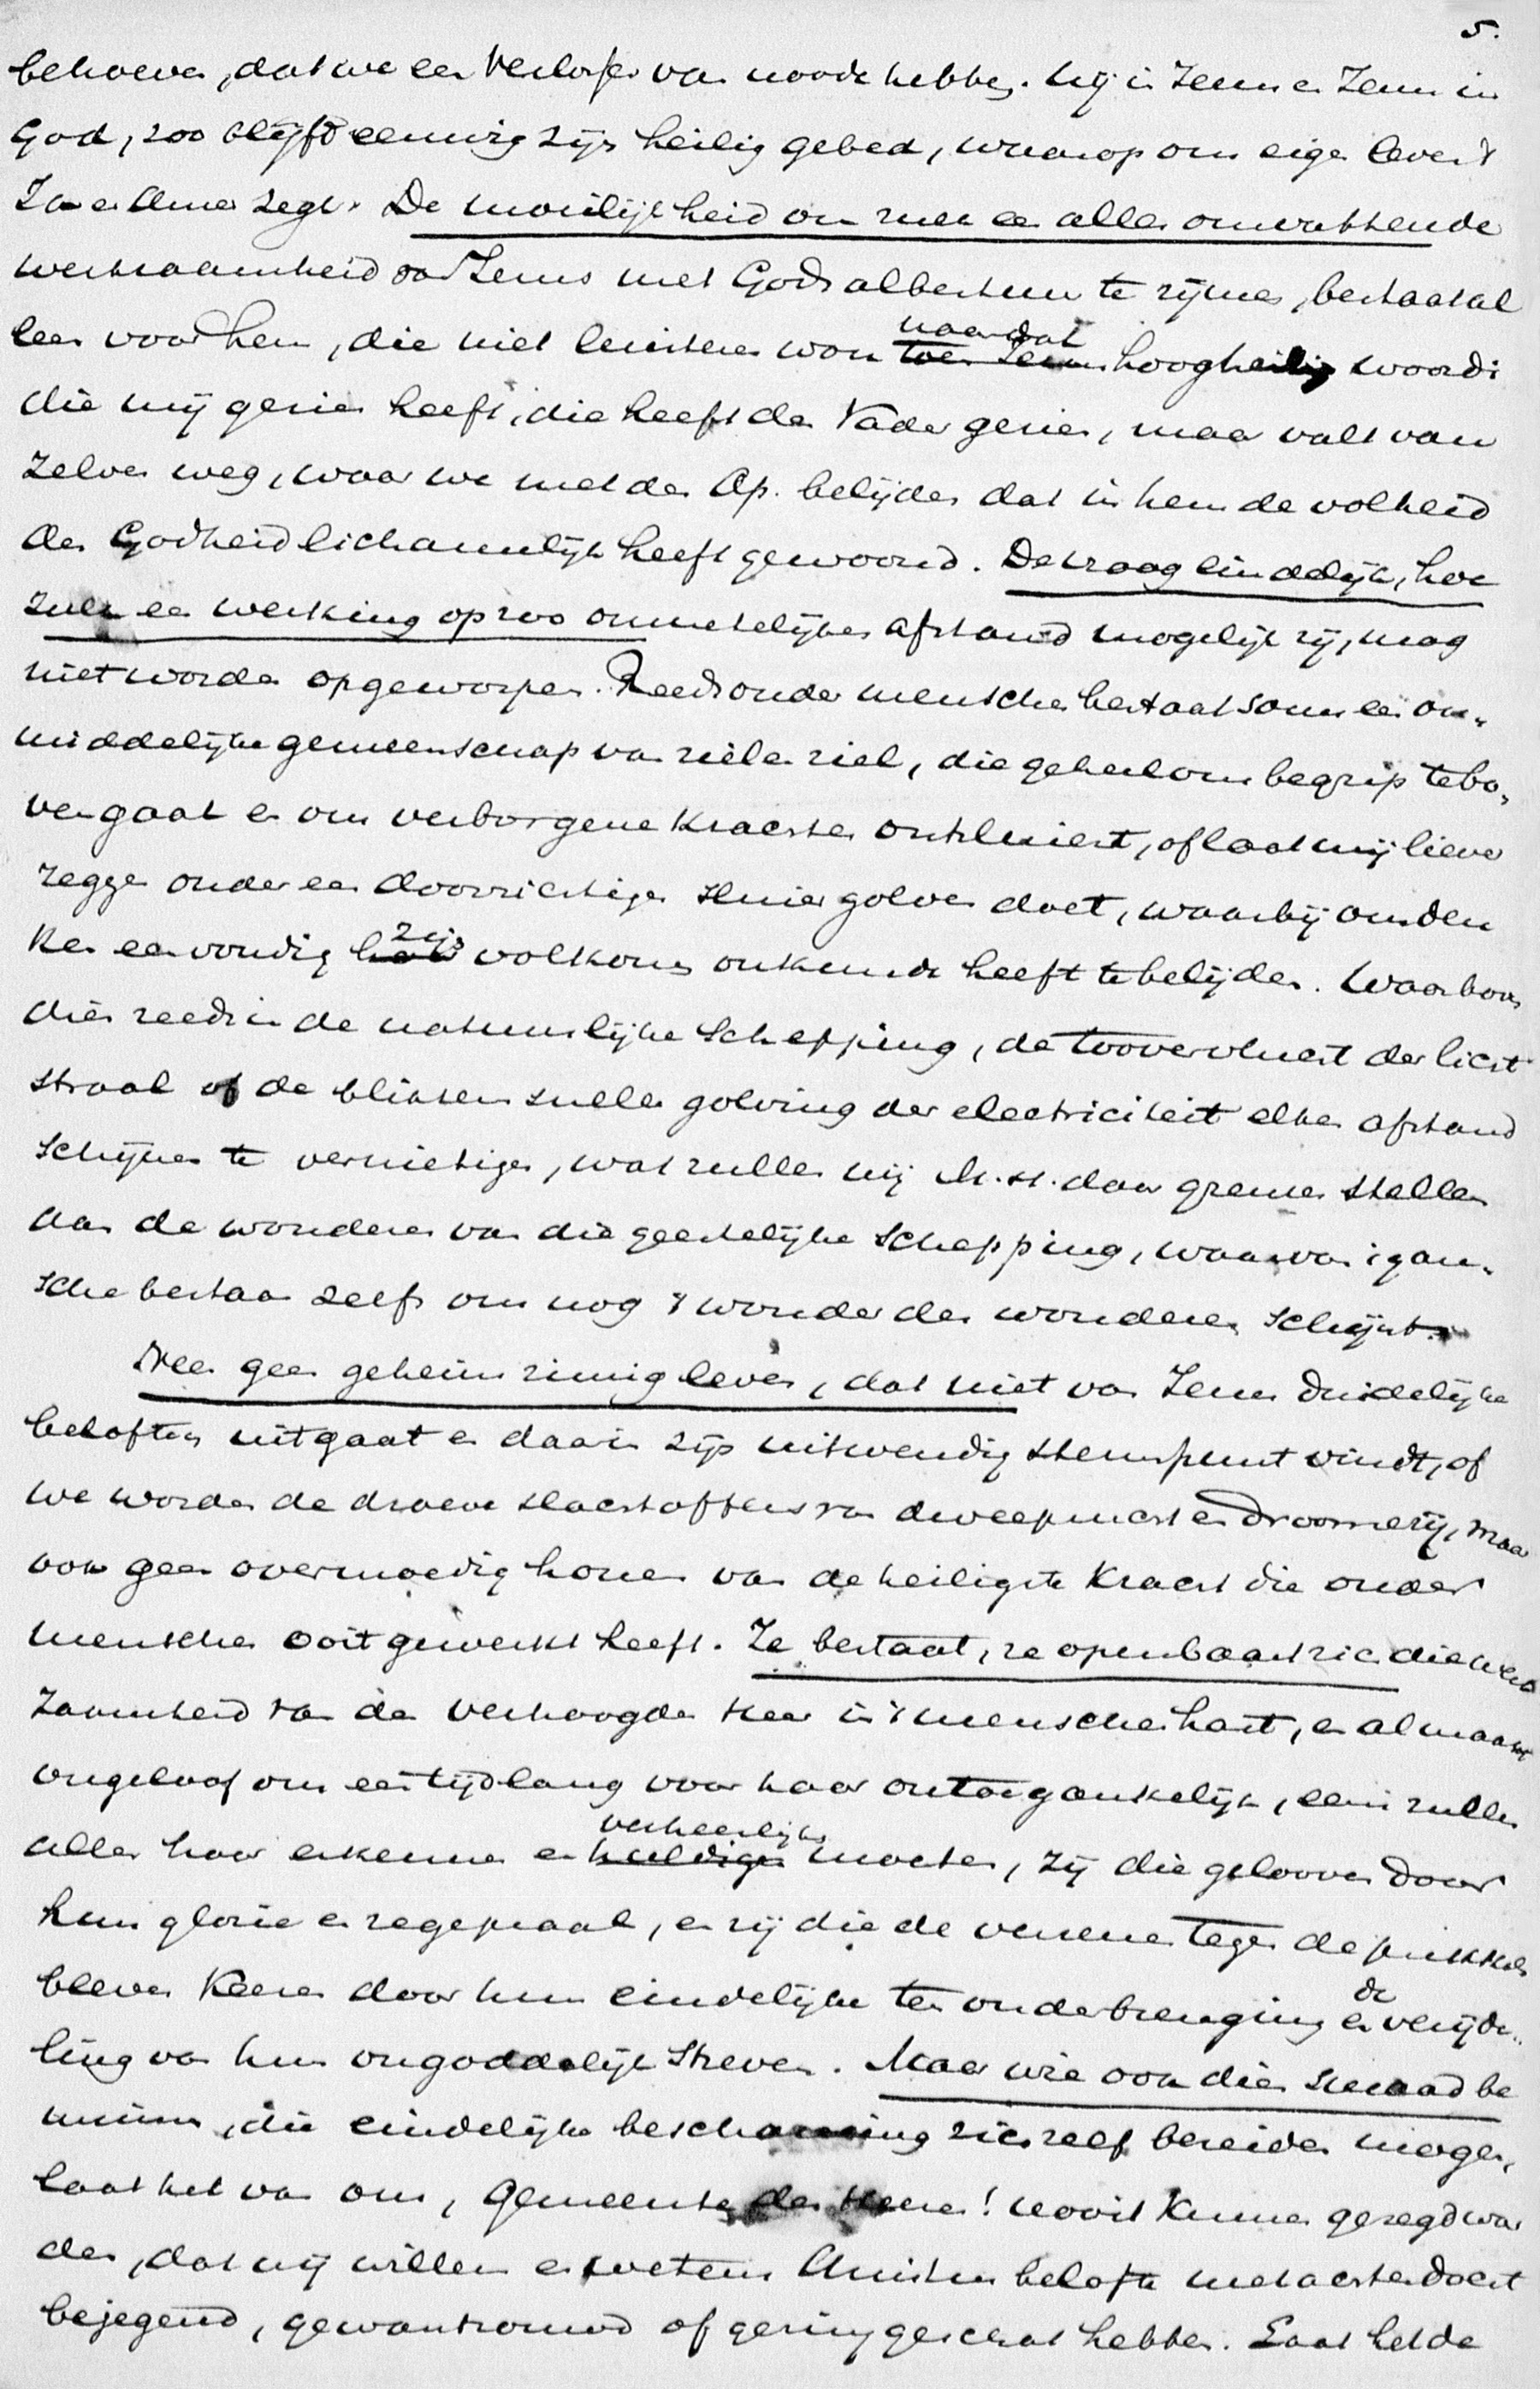 5.
behoeven, dat we een Verlosser van noode hebben. Wij in Jezus en Jezus in
God, zoo blijft eeuwig zijn heilig gebed, waarop ons eigen leven 't
Ja en Amen zegt. De moeilijkheid om zulk een alles omvattende
werkzaamheid van Jezus met Gods albestuur te rijmen, bestaat al
leen voor hem, die niet luisteren wou naar dat hoogheilig woord:
die mij gezien heeft, die heeft den Vader gezien, maar valt van
zelven weg, waar we met den Ap. belijden dat in hem de volheid
der Godheid lichamelijk heeft gewoond. De vraag eindelijk, hoe
zulk een werking op zoo onmetelijken afstand mogelijk zij, mag
niet worden opgeworpen. Reeds onder menschen bestaat soms een on-
middelijke gemeenschap van ziel en ziel, die geheel ons begrip te bo-
ven gaat en ons verborgene krachten ontsluiert, of laat mij liever
zeggen onder een doorzichtigen sluier golven doet, waarbij ons den
ken eenvoudig zijn volkomen onkunde heeft te belijden. Waar boven
dien reeds in de natuurlijke schepping, de toovervlucht der licht
straal of de bliksemsnelle golving der electriciteit elken afstand
schijnen te vernietigen, wat zullen wij M. H. daar grenzen stellen
aan de wonderen van die geestelijke schepping, waarvan 't gan-
sche bestaan zelf ons nog 't wonder der wonderen schijnt.
Neen geen geheimzinnig leven, dat niet van Jezus duidelijke
beloften uitgaat en daarin zijn uitwendig steunpunt vindt, of
we worden de droeve slachtoffers van dweepzucht en droomerij, maar
ook geen overmoedig honen van de heiligste kracht die onder
menschen ooit gewerkt heeft. Ze bestaat, ze openbaart zich die werk
zaamheid van den verhoogden Heer in 't menschenhart, en al maakt
ongeloof ons een tijdlang voor haar ontoegankelijk, eens zullen
allen haar erkennen en verheerlijken moeten, zij die gelooven door
hun glorie en zegepraal, en zij die de verzenen tegen de prikkels
bleven keeren door hun eindelijke ten onderbrenging en de verijde-
ling van hun ongoddelijk streven. Maar wie ook dien smaad be
minnen, die eindelijke beschaming zich zelf bereiden mogen,
laat het van ons, Gemeente des Heeren! nooit kunnen gezegd wor
den, dat wij willens en wetens Christus belofte met achterdocht
bejegend, gewantrouwd of gering geschat hebben. Laat het de